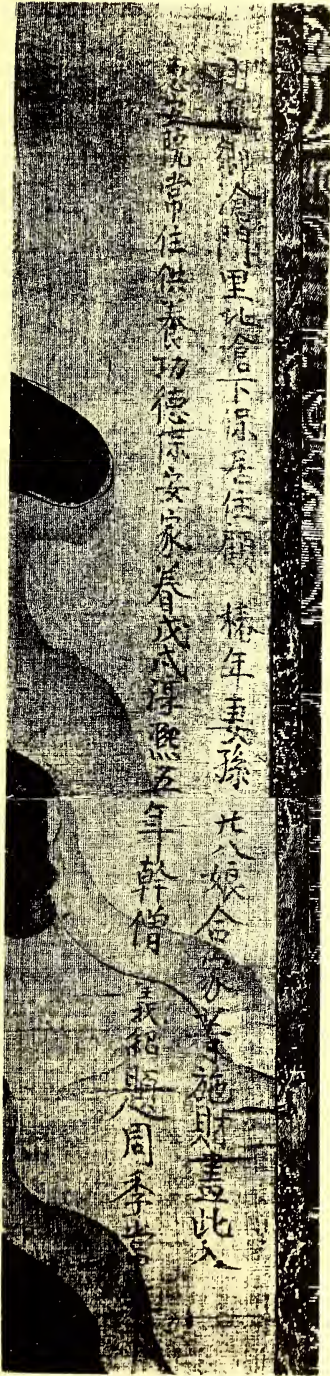 滄門里北滄下保居住顧椿年妻孫廿八娘合家等施財畫此入
惠安院常住供養功德保安家眷戊戌淳熙五年幹僧義紹題周季常